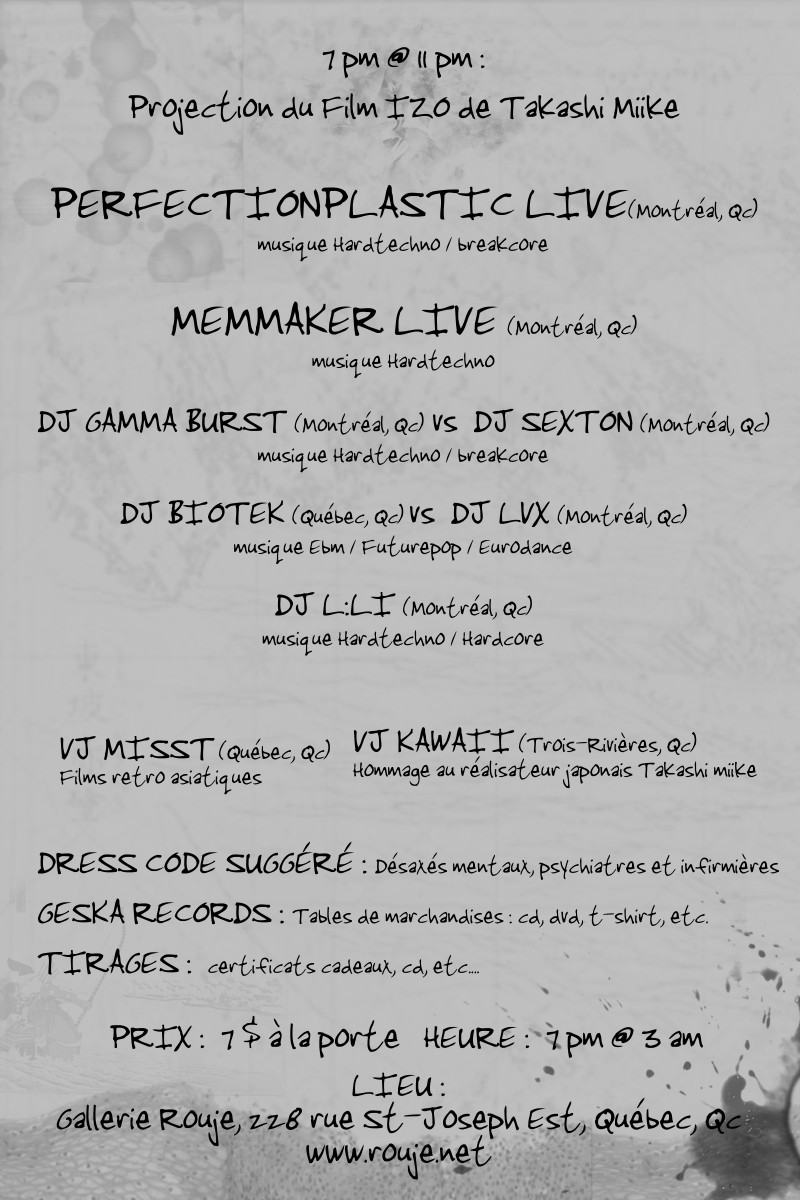 7 pm @ 11 pm :
Projection du Film IZO de Takashi Miike
PERFECTIONPLASTIC LIVE (Montréal, Qc)
musique Hardtechno / breakcore
MEMMAKER LIVE (Montréal, Qc)
musique Hardtechno
DJ GAMMA BURST (Montréal, Qc) VS DJ SEXTON (Montréal, Qc)
musique Hardtechno / breakcore
DJ BIOTEK (Québec, Qc) VS DJ LVX (Montréal, Qc)
musique Ebm / Futurepop / Eurodance
DJ L:LI (Montréal, Qc)
musique Hardtechno / Hardcore
VJ MISST (Québec, Qc)
Films retro asiatiques
VJ KAWAII (Trois-Rivières, Qc)
Hommage au réalisateur japonais Takashi miike
DRESS CODE SUGGÉRÉ : Désaxés mentaux, psychiatres et infirmières
GESKA RECORDS : Tables de marchandises : cd, dvd, t-shirt, etc.
TIRAGES : certificats cadeaux, cd, etc....
PRIX : 7 $ à la porte HEURE : 7 pm @ 3 am
LIEU :
Gallerie Rouje, 228 rue St-Joseph Est, Québec, Qc
www.rouje.net